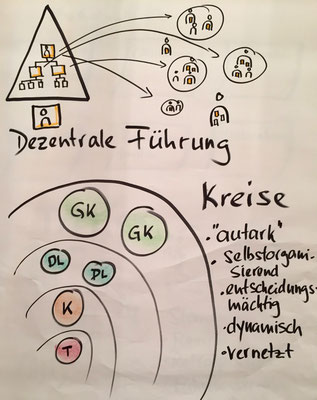 Dezentrale Führung
Kreise
GK
GK
DL
DL
K
T
• "autark"
• Selbstorgani-
sierend
• entscheidungs-
mächtig
• dynamisch
• vernetzt